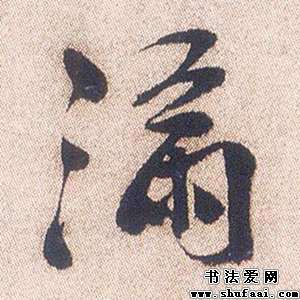 漏
书法爱网
www.shufaai.com